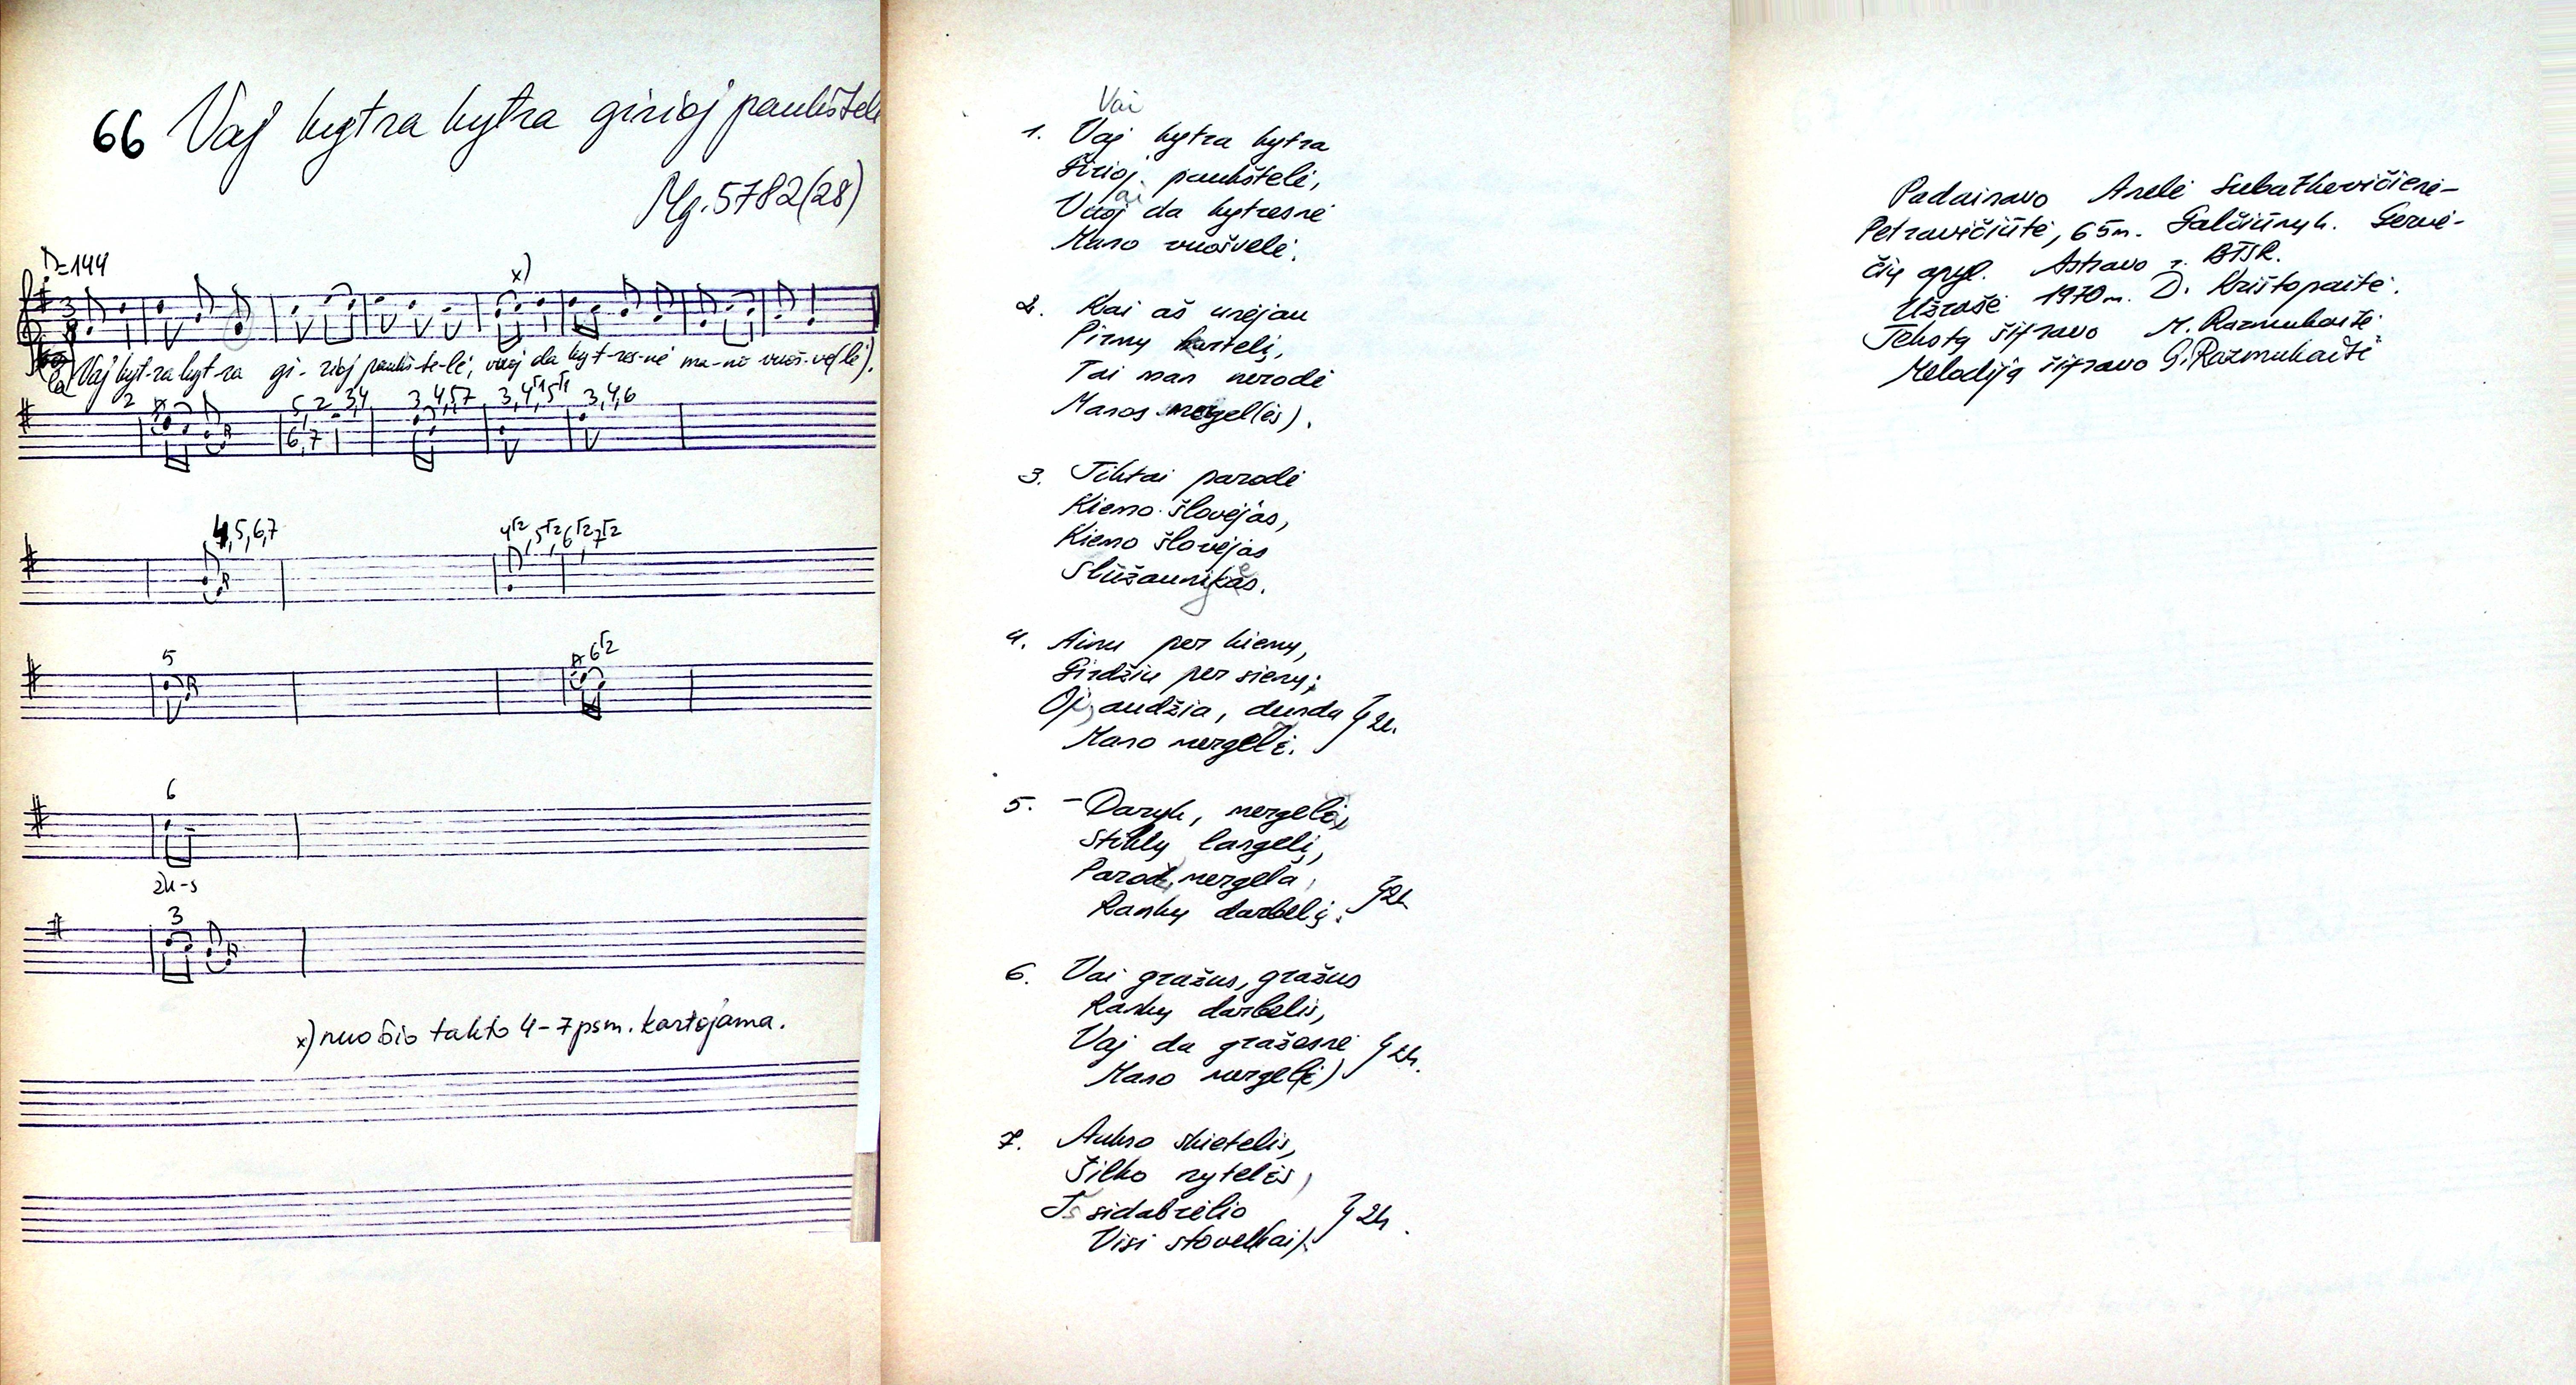 66 Vaj kytra kytra girioj paukštelė
Mg. 5782(28)
♪=144
x)
Vaj kyt-ra kyt-ra gi-rioj paukš-te-lė, vuoj da kyt-res-nė ma-no vuoš-ve(lė).
2 5,2 3,4 3,4,5,7 3,4 5 3,4,6
6,7
4,5,6,7 4 2, 5 2, 6 2, 7 2
5 6 2
6
2k-s
3
x) nuo šio takto 4-7 psm. kartojama.
Vai
1. Vaj kytra kytra
Girioj paukštelė,
Vuoj da kytresnė
Mano vuošvelė.
2. Kai aš unėjau
Pirmų kartelį,
Tai man nerodė
Manos mergel(ės).
3. Tiktai parodė
Kiemo šlovėjas,
Kiemo šlovėjas
4. Ainu per kiemų,
Girdžiu per sienų;
Oj, audžia, dunda } 2k.
Mano mergelė.
5. - Daryk, mergela,
Stiklų langelį,
Parodi, mergela,
Rankų darbelį. } 2k
6. Vai gražus, gražus
Rankų darbelis,
Vaj da gražesnė } 2k.
Mano mergel(ė)
7. Aukso skietelis,
Šilko nytelės,
Iš sidabrėlio } 2k.
Visi stovel(kai).
Padainavo Anelė Subatkevičienė-
Petravičiūtė, 65 m. Galčiūnų k. Gervė-
čių apyl. Astravo r. BTSR.
Užrašė 1970 m. D. Krištopaitė.
Tekstą šifravo M. Razmukaitė
Melodiją šifravo G. Razmukaitė